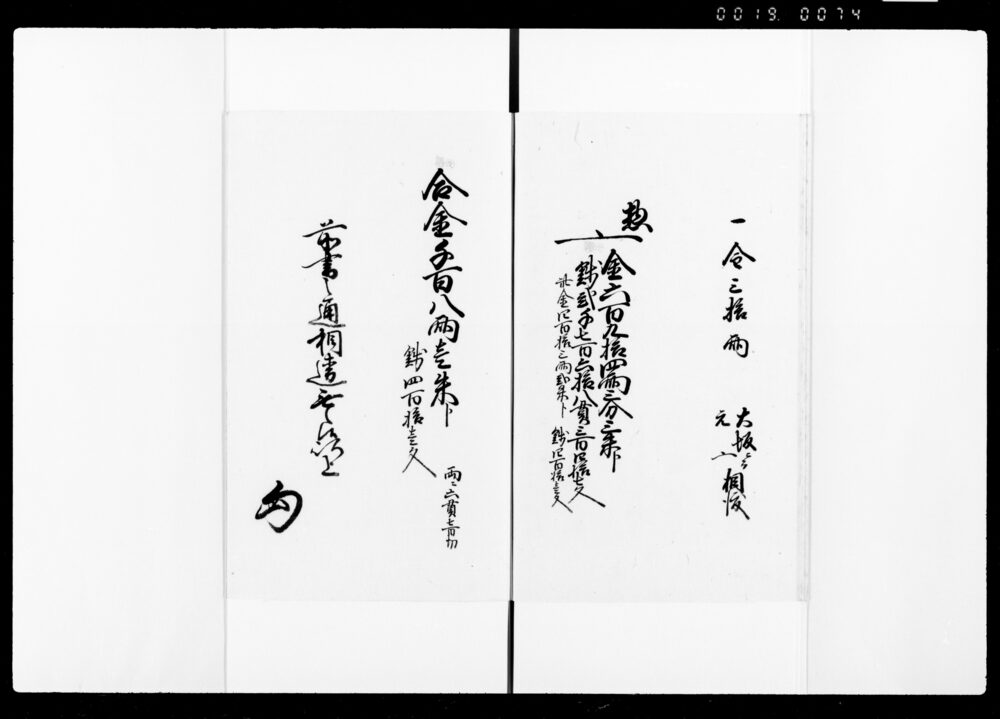 0019 0074
一金三拾両
大坂ゟ
元〆相渡
惣〆
金六百九拾四両三分三朱ト
銭弐千七百六拾八貫三百四拾七文
此金四百拾三両弐朱ト 銭四百拾壱文
合金千百八両壱朱ト
銭四百拾壱文
両ニ六貫七百
前書之通相違無